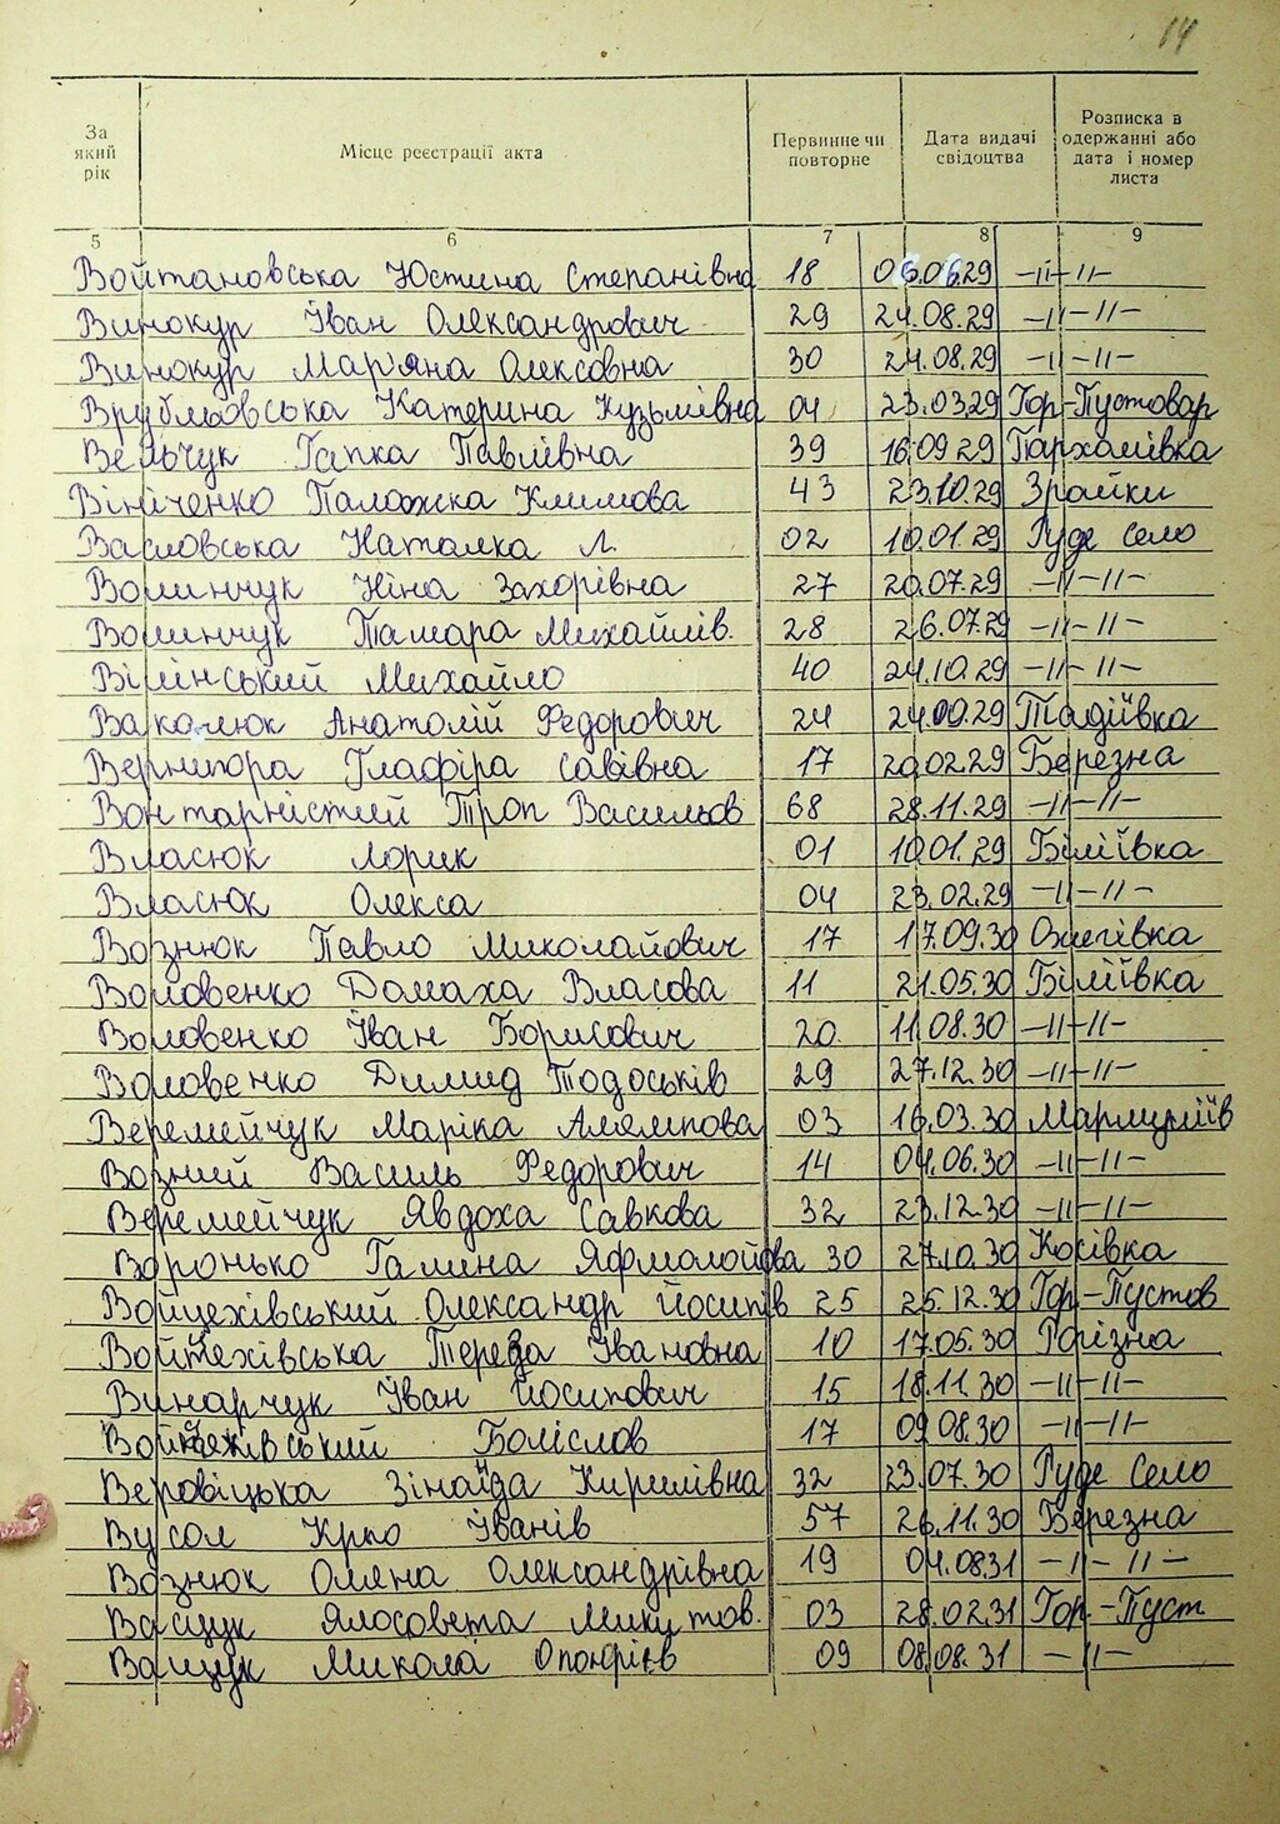 14
За який рік
Місце реєстрації акта
Первинне чи повторне
Дата видачі свідоцтва
Розписка в одержанні або дата і номер листа
5 6 7 8 9
Войтановська Юстина Степанівна 18 06.06.29 -//-//-
Винокур Іван Олександрович 29 24.08.29 -//-//-
Винокур Мар'яна Олексовна 30 24.08.29 -//-//-
Врубльовська Катерина Кузьмівна 04 23.03.29 Гор-Пустовар
Вельчук Гапка Павлівна 39 16.09.29 Пархомівка
Вініченко Палажка Климова 43 23.10.29 Зрайки
Васловська Наталка Л. 02 10.01.29 Руде Село
Волинчук Ніна Захорівна 27 20.07.29 -//-//-
Волинчук Тамара Михайлів. 28 26.07.29 -//-//-
Вілінський Михайло 40 24.10.29 -//-//-
Ваколюк Анатолій Федорович 24 24.09.29 Тадіївка
Вернигора Глафіра Савівна 17 20.02.29 Березна
Вонтарністий Троп Васильов 68 28.11.29 -//-//-
Власюк Лорик 01 10.01.29 Біліївка
Власюк Олекса 04 23.02.29 -//-//-
Вознюк Павло Миколайович 17 17.09.30 Ожегівка
Воловенко Домаха Власова 11 21.05.30 Біліївка
Воловенко Іван Борисович 20 11.08.30 -//-//-
Воловенко Димид Тодоськів 29 27.12.30 -//-//-
Веремейчук Маріка 03 16.03.30
Возний Василь Федорович 14 04.06.30 -//-//-
Веремейчук Явдоха Савкова 32 23.12.30 -//-//-
Воронько Галина 30 27.10.30 Косівка
Войцехівський Олександр Йосипів 25 25.12.30 Гор-Пустов
Войцехівська Тереза Івановна 10 17.05.30 Рогізна
Винарчук Іван Йосипович 15 18.11.30 -//-//-
Войцехівський Боліслов 17 09.08.30 -//-//-
Веровіцька Зінаїда Кирилівна 32 23.07.30 Руде Село
Вусол Іванів 57 26.11.30 Березна
Вознюк Оляна Олександрівна 19 04.08.31 -//-//-
Ващук Ялосовета Микитов. 03 28.02.31 Гор.-Пуст
Ващук Микола 09 08.08.31 -//-